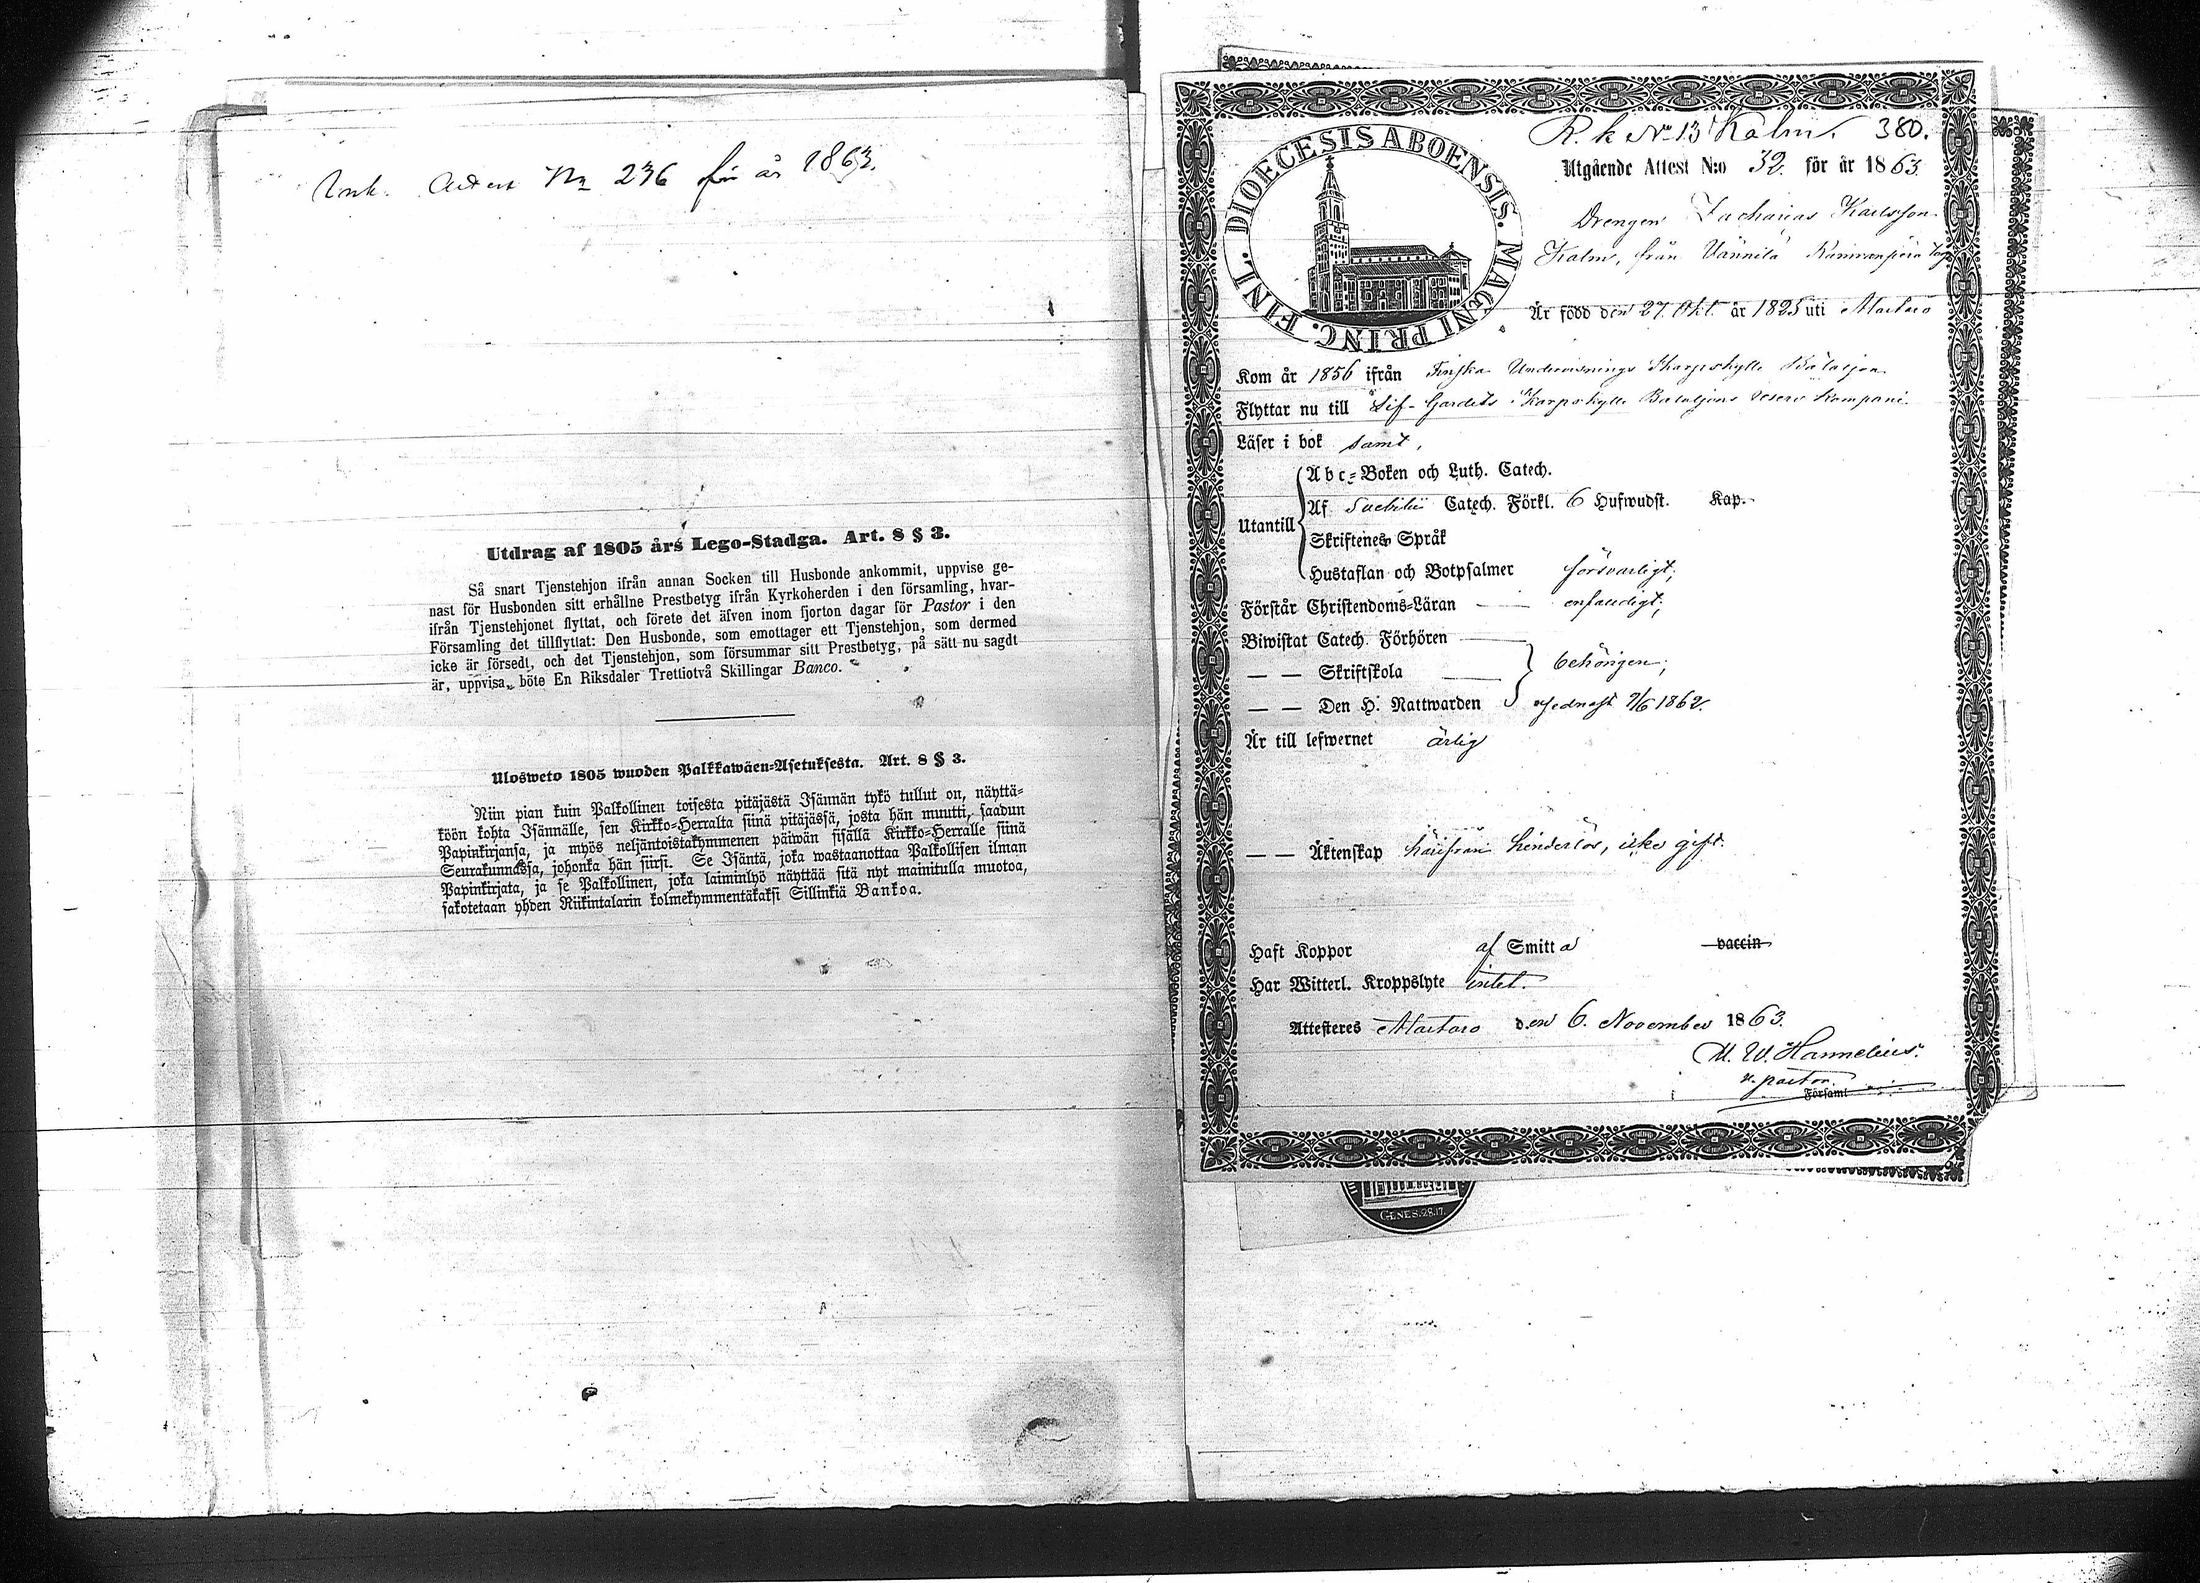 Ink. Attest No 236 för år 1863.
Utdrag af 1805 års Lego-Stadga. Art. 8 § 3.
Så snart Tjenstehjon ifrån annan Socken till Husbonde ankommit, uppvise ge-
nast för Husbonden sitt erhållne Prestbetyg ifrån Kyrkoherden i den församling, hvar-
ifrån Tjenstehjonet flyttat, och förete det äfven inom fjorton dagar för Pastor i den
Församling det tillflyttat: Den Husbonde, som emottager ett Tjenstehjon, som dermed
icke är försedt, och det Tjenstehjon, som försummar sitt Prestbetyg, på sätt nu sagdt
är, uppvisa, böte En Riksdaler Trettiotvå Skillingar Banco.
Ulosweto 1805 wuoden Palkkawäen-Asetuksesta. Art. 8 § 3.
Niin pian kuin Palkollinen toisesta pitäjästä Isännän tykö tullut on, näyttä-
köön kohta Isännälle, sen Kirkko-Herralta siinä pitäjässä, josta hän muutti, saadun
Papinkirjansa, ja myös neljäntoistakymmenen päiwän sisällä Kirkko-Herralle siinä
Seurakunnassa, johonka hän siirsi. Se Isäntä, joka wastaanottaa Palkollisen ilman
Papinkirjata, ja se Palkollinen, joka laiminlyö näyttää sitä nyt mainitulla muotoa,
sakotetaan yhden Riikintalarin kolmekymmentäkaksi Sillinkiä Bankoa.
DIOECESIS ABOENSIS. MAGNI PRINC. FINL.
R. k No 13 Kalm. 380.
Utgående Attest N:o 32 för år 1863.
Drengen Zacharias Karlsson
Kalm, från Vännilä
Är född den 27 Okt. år 1825 uti Marttio
Kom år 1856 ifrån Finska Undervisnings Skarpskytte Bataljon
Flyttar nu till Lif-Gardets Skarpskytte Bataljons reserv Kompani
Läser i bok samt,
Utantill
Abc-Boken och Luth. Catech.
Af Svebilii Catech. Förkl. 6 Hufwudst. Kap.
Skriftenes Språk
Hustaflan och Botpsalmer försvarligt;
Förstår Christendoms-Läran enfaldigt;
Biwistat Catech. Förhören
— — Skriftskola behörigen;
— — Den H. Nattwarden sednast 7/6 1862.
Är till lefwernet ärlig
— — Äktenskap härifrån hinderlös, icke gift.
Haft Koppor af Smitta vaccin
Har Witterl. Kroppslyte intet.
Attesteres den 6. November 1863.
M. W. Hannelius.
v. pastor.
Församl
GENES. 28. 17.